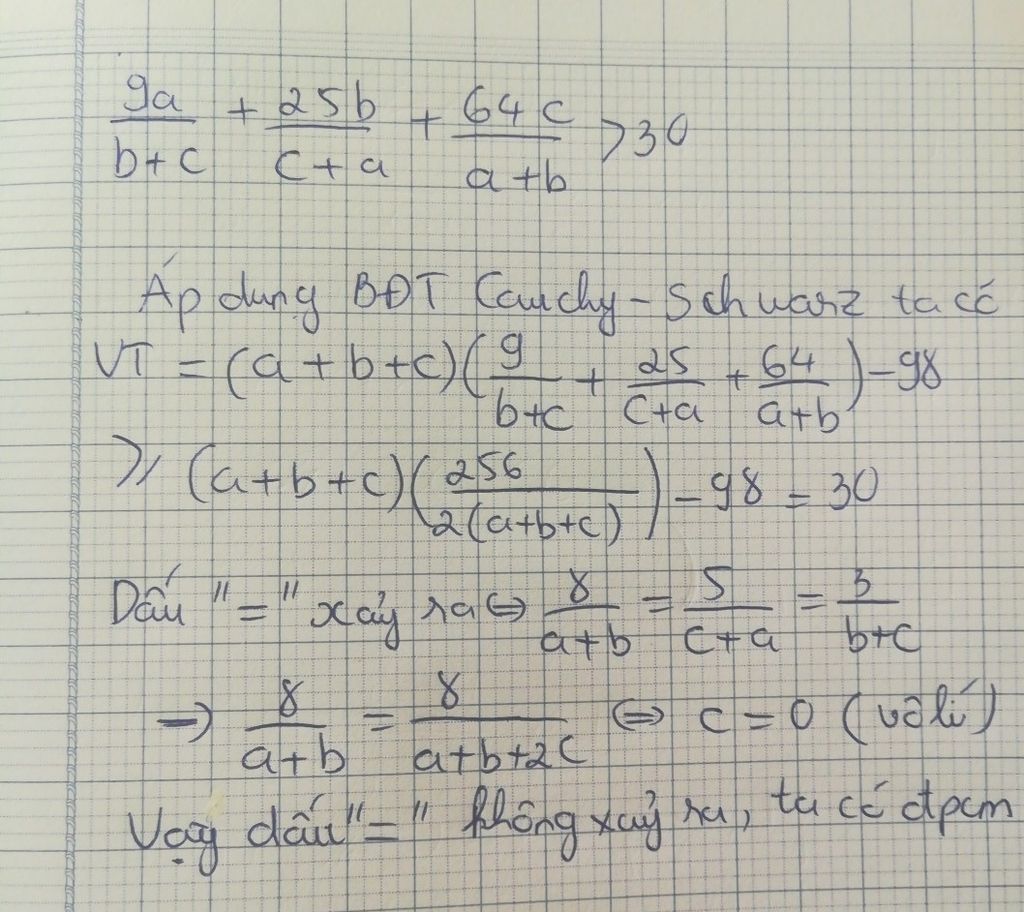 9a/(b+c) + 25b/(c+a) + 64c/(a+b) > 30
Áp dụng BĐT Cauchy-Schwarz ta có
VT = (a+b+c)(9/(b+c) + 25/(c+a) + 64/(a+b)) - 98
≥ (a+b+c)(256/(2(a+b+c))) - 98 = 30
Dấu "=" xảy ra ⇔ 8/(a+b) = 5/(c+a) = 3/(b+c)
→ 8/(a+b) = 8/(a+b+2c) ⇔ c = 0 (vô lí)
Vậy dấu "=" không xảy ra, ta có đpcm